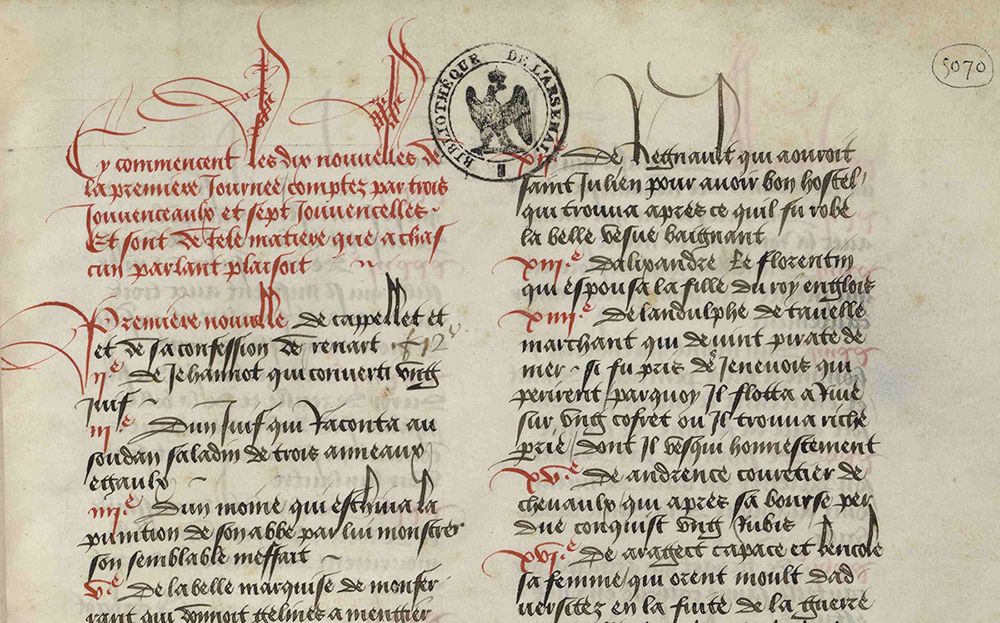 Cy commencent les dix nouvelles de
la premiere Journee comptez par trois
Jouvenceaulx et sept Jouvencelles
Et sont de tele matiere que a chas
cun parlant plaisoit
Premiere nouvelle de cappellet et
et de sa confession de renart
ii.e De Jehannot qui converti ung
Juif
iii.e Dun Juif qui Raconta au
soudan saladin de trois anneaux
egaulx
iiii.e Dun moine qui eschiva la
punition de son abbe par lui monstrer
son semblable meffait
v.e De la belle marquise de monfer
rant qui donnoit gelines a mengier
BIBLIOTHÈQUE DE L'ARSENAL
5070
xii.e De Regnault qui aouroit
saint Julien pour avoir bon hostel
qui trouva apres ce quil fu robe
la belle vesve baignant
xiii.e Dalixandre le florentin
qui espousa la fille du roy englois
xiiii.e De landulphe de
marchant qui devint pirate de
mer si fu pris de Jenevois qui
perirent parquoy Il flotta a Rive
sur ung cofret ou Il trouva riche
prie dont Il vesqui honnestement
xv.e De andrence couretier de
chevaulx qui apres sa bourse per
due conquist ung Rubis
xvi.e De capace et
sa femme qui orent moult dad
versitez en la fuite de la guerre